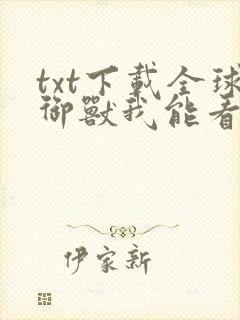 txt下載全球
御獸我能看
伊家新